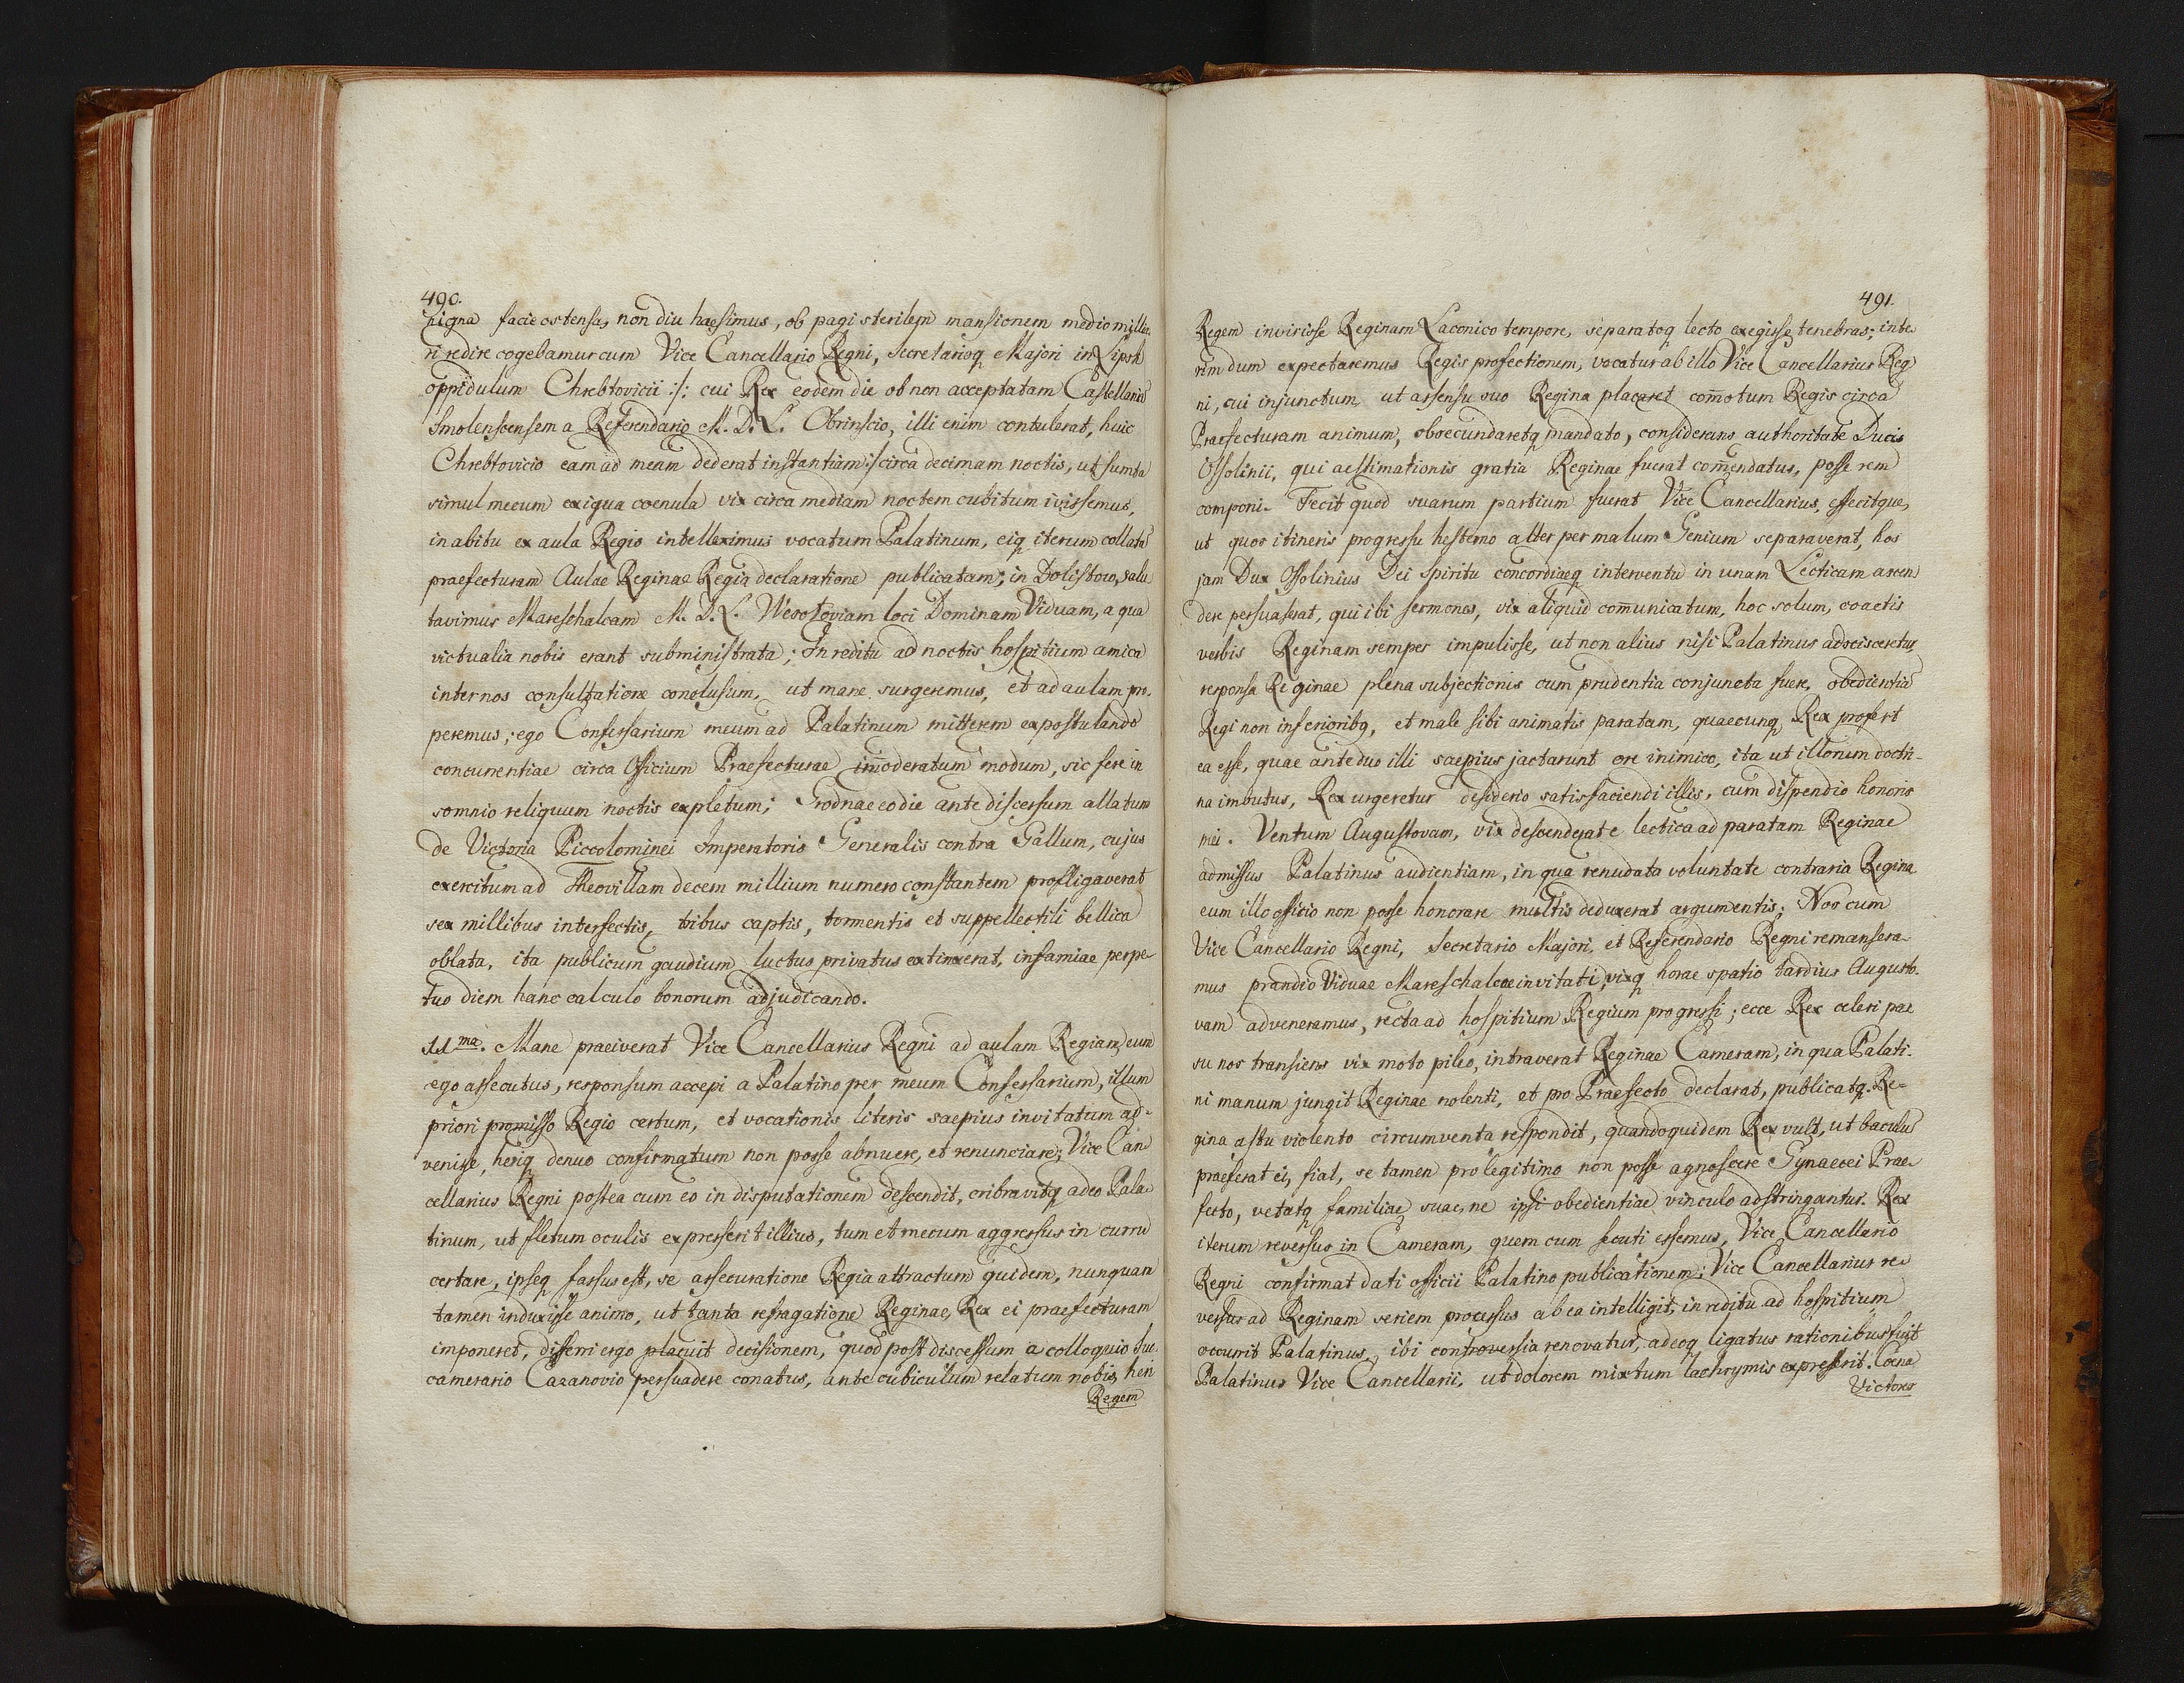 490.
nigna facie ostensa, non diu haesimus, ob pagi sterilem mansionem medio millia-
ri redire cogebamur cum Vice Cancellario Regni, Secretarioq Majori in Lipsk
oppidulum Chrebtovicii :/: cui Rex eodem die ob non acceptatam Castellaniã
Smolenscensem a Referendario M. D. L. Obrinscio, illi enim contulerat, huic
Chrebtovicio eam ad meam dederat instantiam :/ circa decimam noctis, ut sumta
simul mecum exigua coenula vix circa mediam noctem cubitum ivissemus,
in abitu ex aula Regis intelleximus vocatum Palatinum, eiq iterum collatã
praefecturam Aulae Reginae Regia declaratione publicatam; in Dolistow, salu
tavimus Mareschalcam M. D. L. Wesotoviam loci Dominam Viduam, a qua
victualia nobis erant subministrata; In reditu ad noctis hospitium amica
inter nos consultatione conclusum, ut mane surgeremus, et ad aulam pro-
peremus; ego Confessarium meum ad Palatinum mitterem expostulando
concurrentiae circa Officium Praefecturae im̃oderatum modum, sic fere in
somnio reliquum noctis expletum; Grodnae eo die ante discessum allatum
de Victoria Piccolominei Imperatoris Generalis contra Gallum, cujus
exercitum ad Theovillam decem millium numero constantem profligaverat
sex millibus interfectis, tribus captis, tormentis et suppellectili bellica
oblata, ita publicum gaudium luctus privatus extinxerat, infamiae perpe-
tuo diem hanc calculo bonorum adjudicando.
11ma. Mane praeiverat Vice Cancellarius Regni ad aulam Regiam, eum
ego assecutus, responsum accepi a Palatino per meum Confessarium, illum
priori promisso Regio certum, et vocationis literis saepius invitatum ad-
venisse, heriq denuo confirmatum non posse abnuere, et renunciare; Vice Can
cellarius Regni postea cum eo in disputationem descendit, cribravitq adeo Pala-
tinum, ut fletum oculis expresserit illius, tum et mecum aggressus in curru
certare, ipseq fassus est, se assecuratione Regia attractum quidem, nunquam
tamen induxisse animo, ut tanta refragatione Reginae, Rex ei praefecturam
imponeret, differri ergo placuit decisionem, quod post discessum a colloquio Suc
camerario Cazanovio persuadere conatus, ante cubiculum relatum nobis, heri
Regem
491.
Regem invisisse Reginam Laconico tempore, separatoq lecto exegisse tenebras; inte-
rim dum expectaremus Regis profectionem, vocatur ab illo Vice Cancellarius Reg-
ni, cui injunctum, ut assensu suo Regina placaret com̃otum Regis circa
Praefecturam animum, obsecundaretq mandato, considerans authoritate Ducis
Ossolinii, qui aestimationis gratia Reginae fuerat com̃endatus, posse rem
componi. Fecit quod suarum partium fuerat Vice Cancellarius, effecitque,
ut quos itineris progressu hesterno alter per malum Genium separaverat, hos
jam Dux Ossolinius Dei Spiritu concordiaeq interventu in unam Lecticam ascen
dere persuaserat, qui ibi sermones, vix aliquid com̃unicatum, hoc solum, coactis
verbis Reginam semper impulisse, ut non alius nisi Palatinus adscisceretur,
responsa Reginae plena subjectionis cum prudentia conjuncta fuere, obedientiã
Regi non inferioribq, et male sibi animatis paratam, quaecunq Rex profert
ea esse, quae ante duo illi saepius jactarunt ore inimico, ita ut illorum doctri-
na imbutus, Rex urgeretur desiderio satisfaciendi illis, cum dispendio honoris
mei. Ventum Augustovam, vix descenderat e lectica ad paratam Reginae
admissus Palatinus audientiam, in qua renudata voluntate contraria Regina
eum illo officio non posse honorare multis deduxerat argumentis; Nos cum
Vice Cancellario Regni, Secretario Majori, et Referendario Regni remansera-
mus prandio Viduae Mareschalcae invitati, vixq horae spatio tardius Augusto-
vam adveneramus, recta ad hospitium Regium progressi; ecce Rex celeri pas
su nos transiens vix moto pileo, intraverat Reginae Cameram, in qua Palati-
ni manum jungit Reginae nolenti, et pro Praefecto declarat, publicatq. Re-
gina astu violento circumventa respondit, quandoquidem Rex vult, ut baculũ
praeferat ei, fiat, se tamen pro legitimo non posse agnoscere Gynaecei Prae-
fecto, vetatq familiae suae, ne ipsi obedientiae vinculo adstringantur. Rex
iterum reversus in Cameram, quem cum secuti essemus, Vice Cancellario
Regni confirmat dati officii Palatino publicationem; Vice Cancellarius re-
versus ad Reginam seriem processus ab ea intelligit, in reditu ad hospitium
occurrit Palatinus, ibi controversia renovatur, adeoq ligatus rationibus fuit
Palatinus Vice Cancellarii, ut dolorem mixtum lachrymis expresserit. Coena
Victores